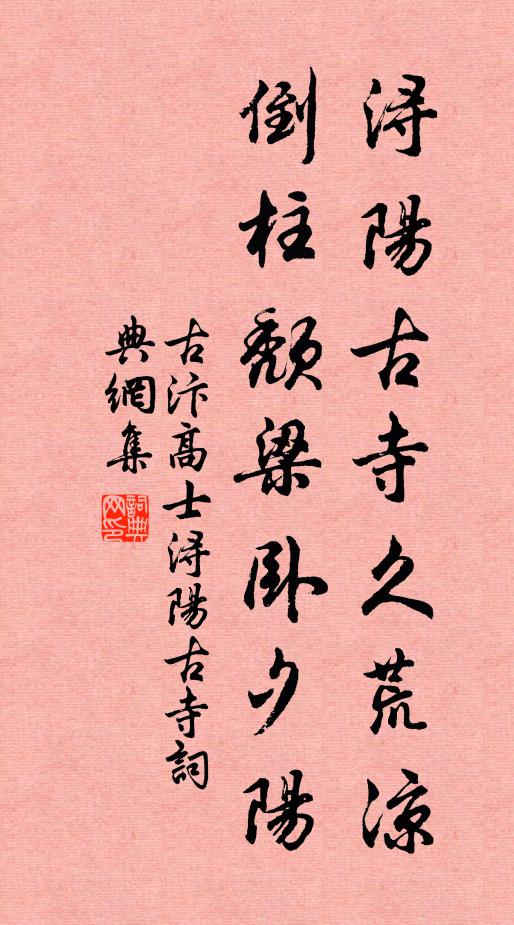 浔陽古寺久荒凉
倒柱頽梁卧夕陽
古汴高士浔陽古寺詞
典網集
詞典网印